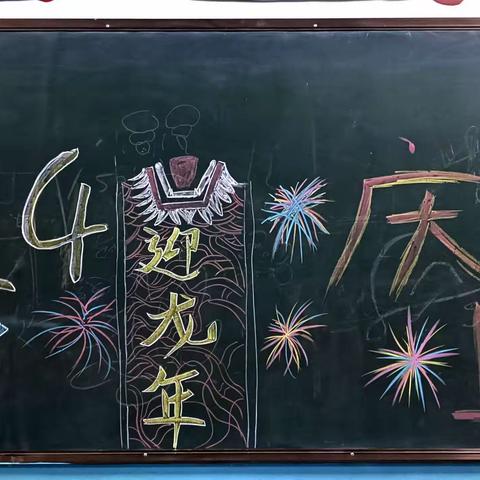 4
迎龙年
庆